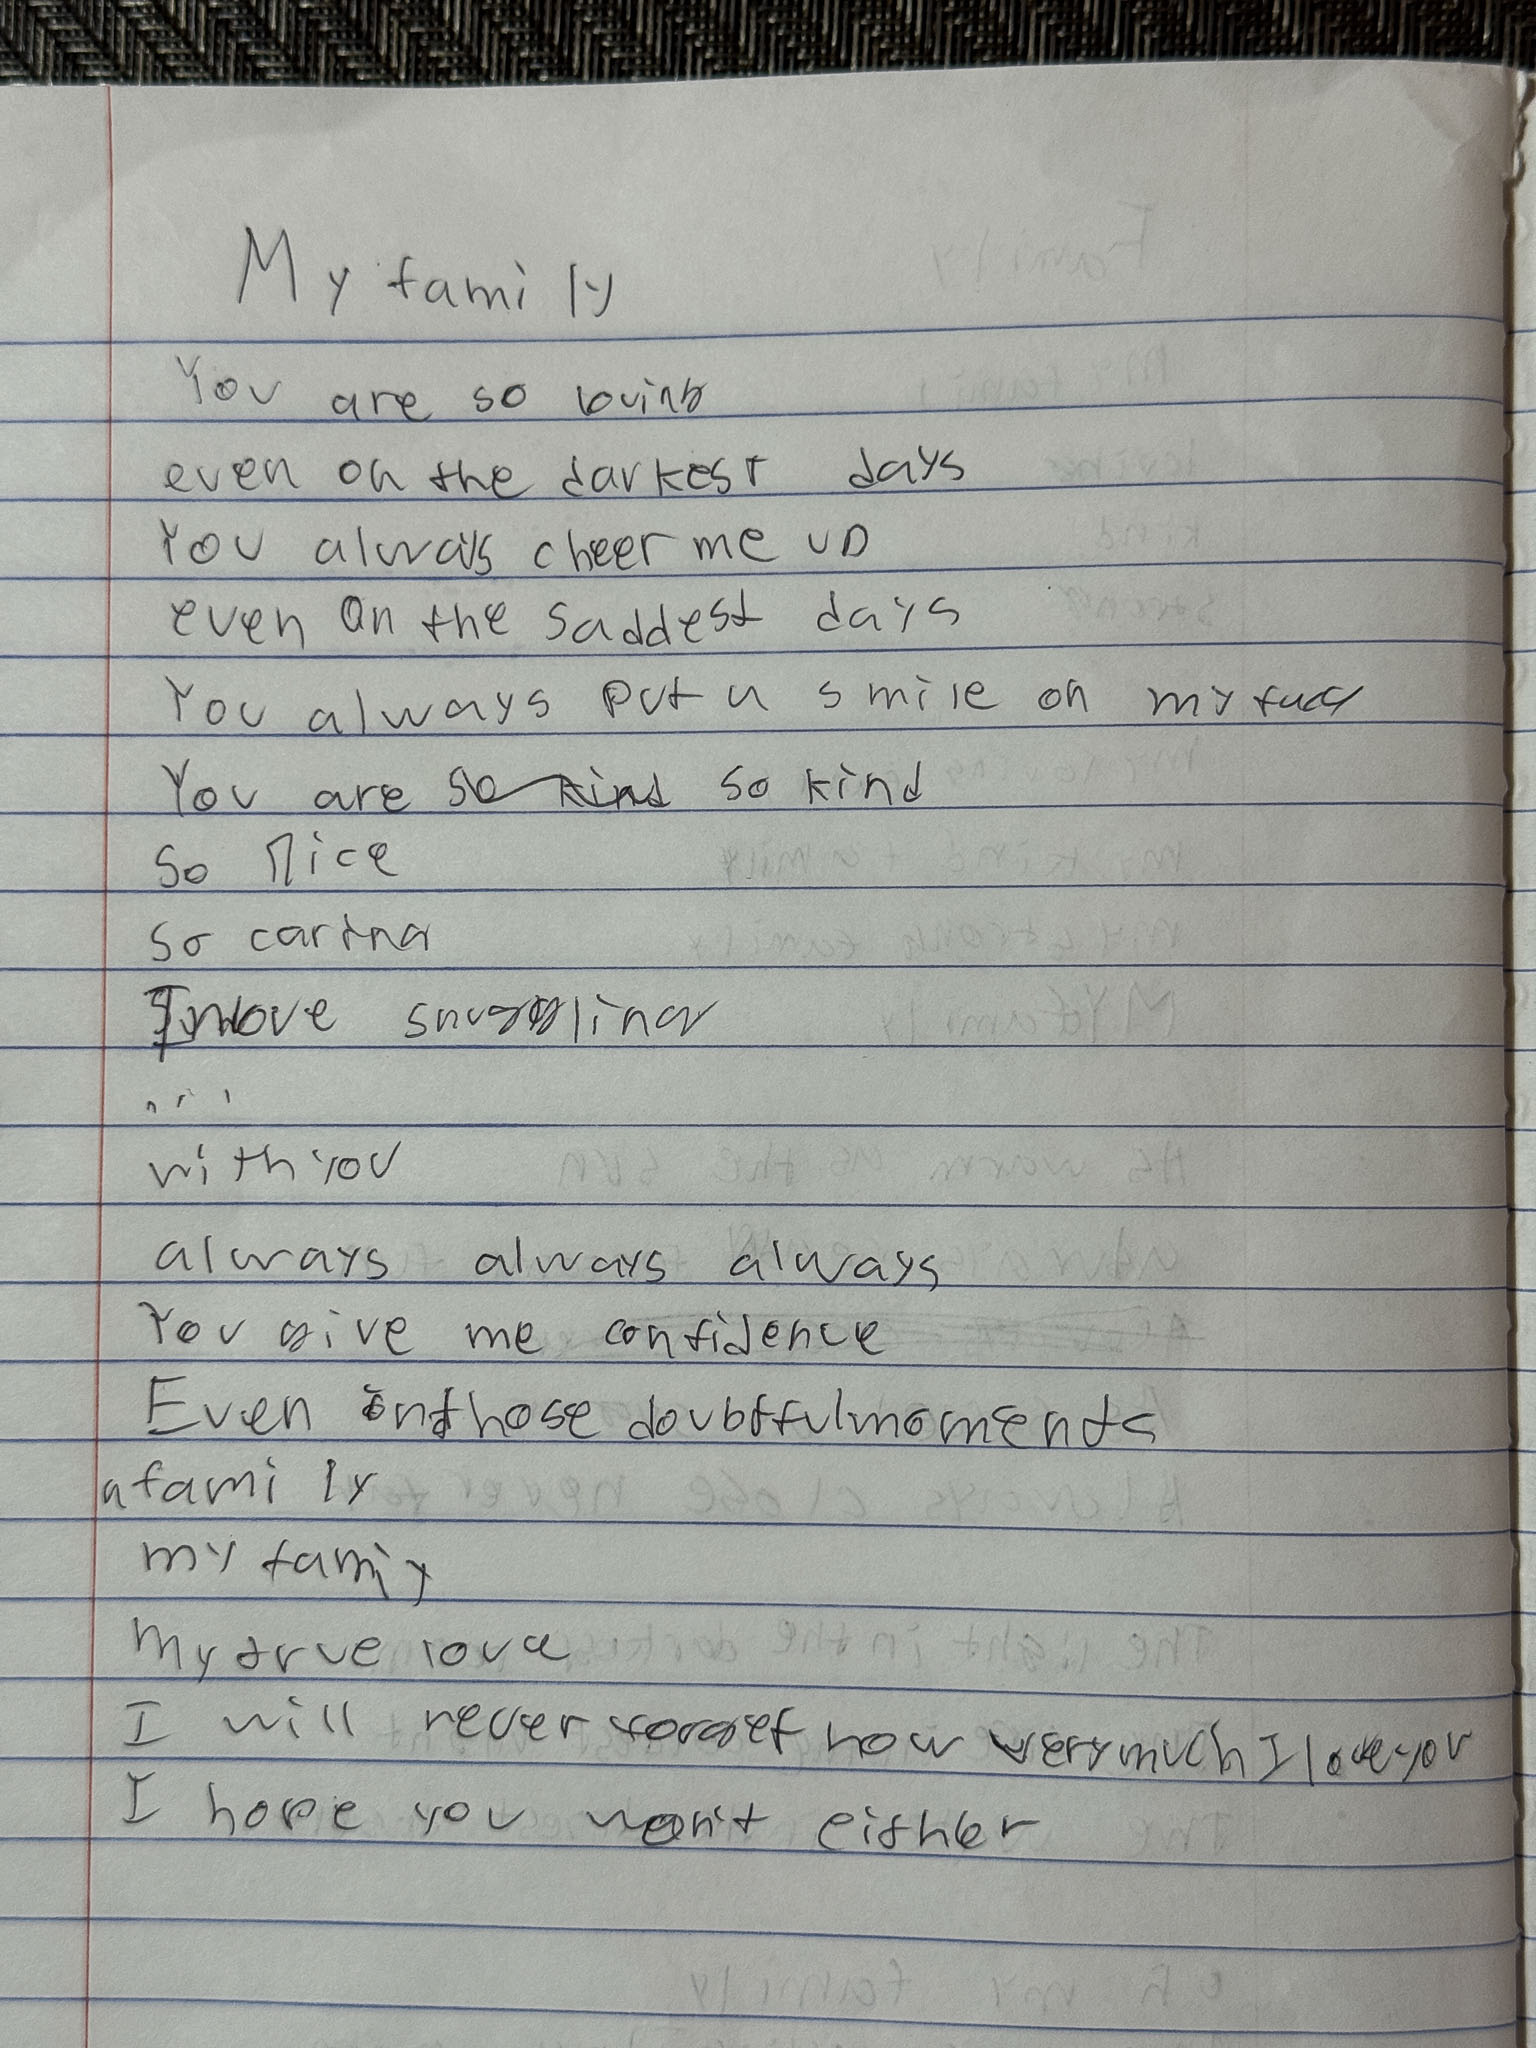 My family
You are so loving
even on the darkest days
You always cheer me up
even on the saddest days
You always put a smile on my face
You are so kind so kind
so nice
so caring
I love snuggling
...
with you
always always always
You give me confidence
Even in those doubtful moments
a family
my famiy
My true love
I will never forget how very much I love you
I hope you won't either